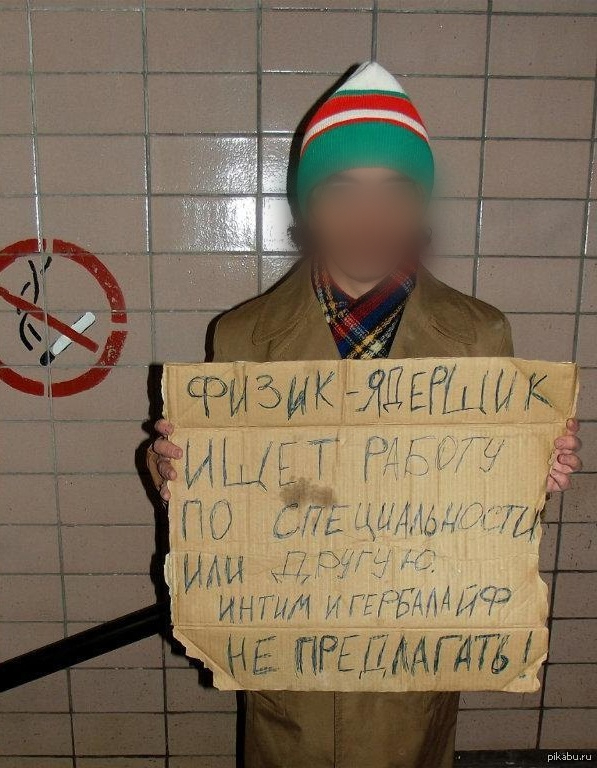 ФИЗИК-ЯДЕРЩИК
ИЩЕТ РАБОТУ
ПО СПЕЦИАЛЬНОСТИ
ИЛИ ДРУГУЮ.
ИНТИМ И ГЕРБАЛАЙФ
НЕ ПРЕДЛАГАТЬ!
pikabu.ru